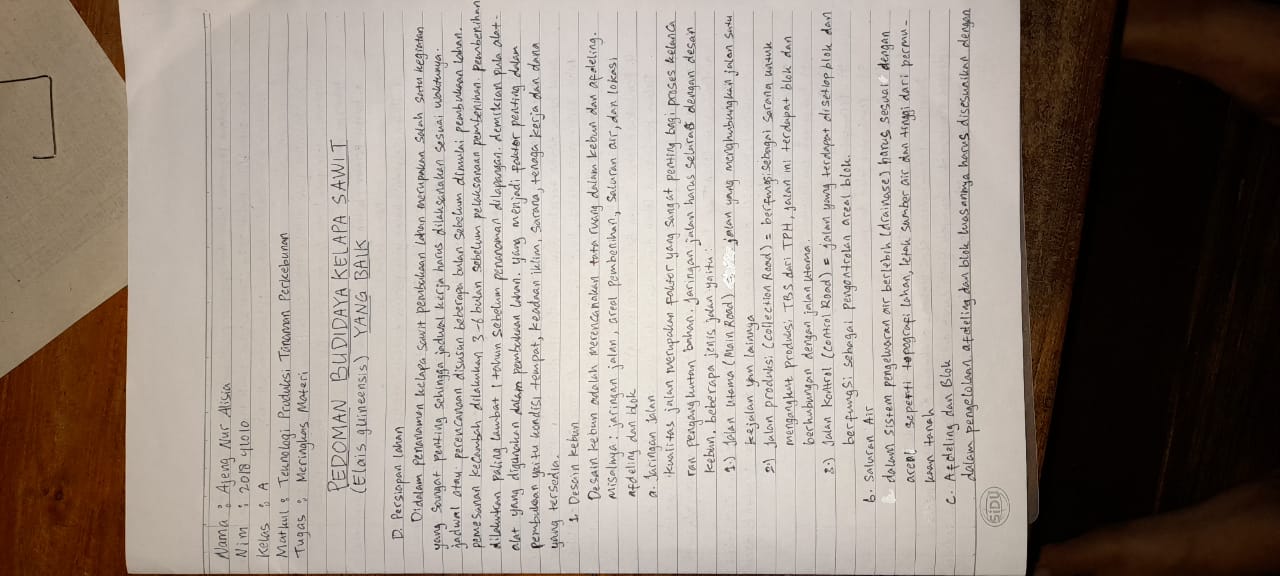 Nama : Ajeng Nur Alisia
Nim : 2018 41010
Kelas : A
Matkul : Teknologi Produksi Tanaman Perkebunan
Tugas : Meringkas Materi
PEDOMAN BUDIDAYA KELAPA SAWIT
(Elais guineensis) YANG BAIK
D. Persiapan lahan
Didalam penanaman kelapa sawit pembukaan lahan merupakan salah satu kegiatan
yang sangat penting sehingga jadwal kerja harus dilaksanakan sesuai waktunya.
jadwal atau perencanaan disusun beberapa bulan sebelum dimulai pembukaan lahan.
pemesanan kecambah dilakukan 3-6 bulan sebelum pelaksanaan pembenihan. Pembenihan
dilakukan paling lambat 1 tahun sebelum penanaman dilapangan. demikian pula alat-
alat yang digunakan dalam pembukaan lahan. yang menjadi faktor penting dalam
pembukaan yaitu kondisi tempat, keadaan iklim, sarana, tenaga kerja dan dana
yang tersedia.
1. Desain kebun
Desain kebun adalah merencanakan tata ruang dalam kebun dan afdeling.
misalnya : jaringan jalan, areal pembenihan, saluran air, dan lokasi
afdeling dan blok
a. Jaringan jalan
kualitas jalan merupakan faktor yang sangat penting bagi proses kelanca
ran pengangkutan bahan. jaringan jalan harus selaras dengan desain
kebun, beberapa jenis jalan yaitu
1.) Jalan utama (Main Road) = jalan yang menghubungkan jalan satu
kejalan yan lainnya
2.) Jalan produksi (collection Road) = berfungsi sebagai sarana untuk
mengangkut produksi TBS dari TPH, jalan ini terdapat blok dan
berhubungan dengan jalan utama.
3.) Jalan kontrol (control Road) = jalan yang terdapat disetiap blok dan
berfungsi sebagai pengontrolan areal blok.
b. Saluran Air
dalam sistem pengeluaran air berlebih (drainase) harus sesuai dengan
areal seperti topografi lahan, letak sumber air dan tinggi dari permu-
kaan tanah
c. Afdeling dan Blok
dalam pengelolaan afdeling dan blok luasannya harus disesuaikan dengan
SIDU